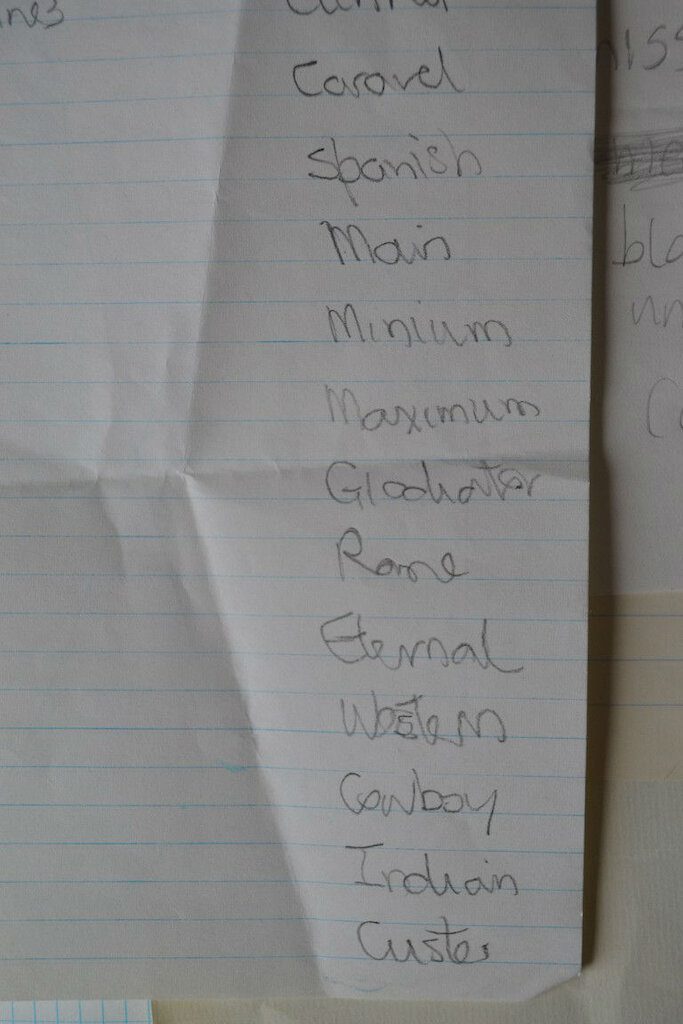 Caravel
Spanish
Main
Minium
Maximum
Gladiator
Rome
Eternal
Western
Cowboy
Indian
Custer